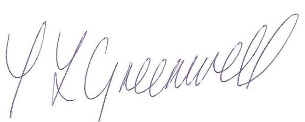 Y L Greenwell